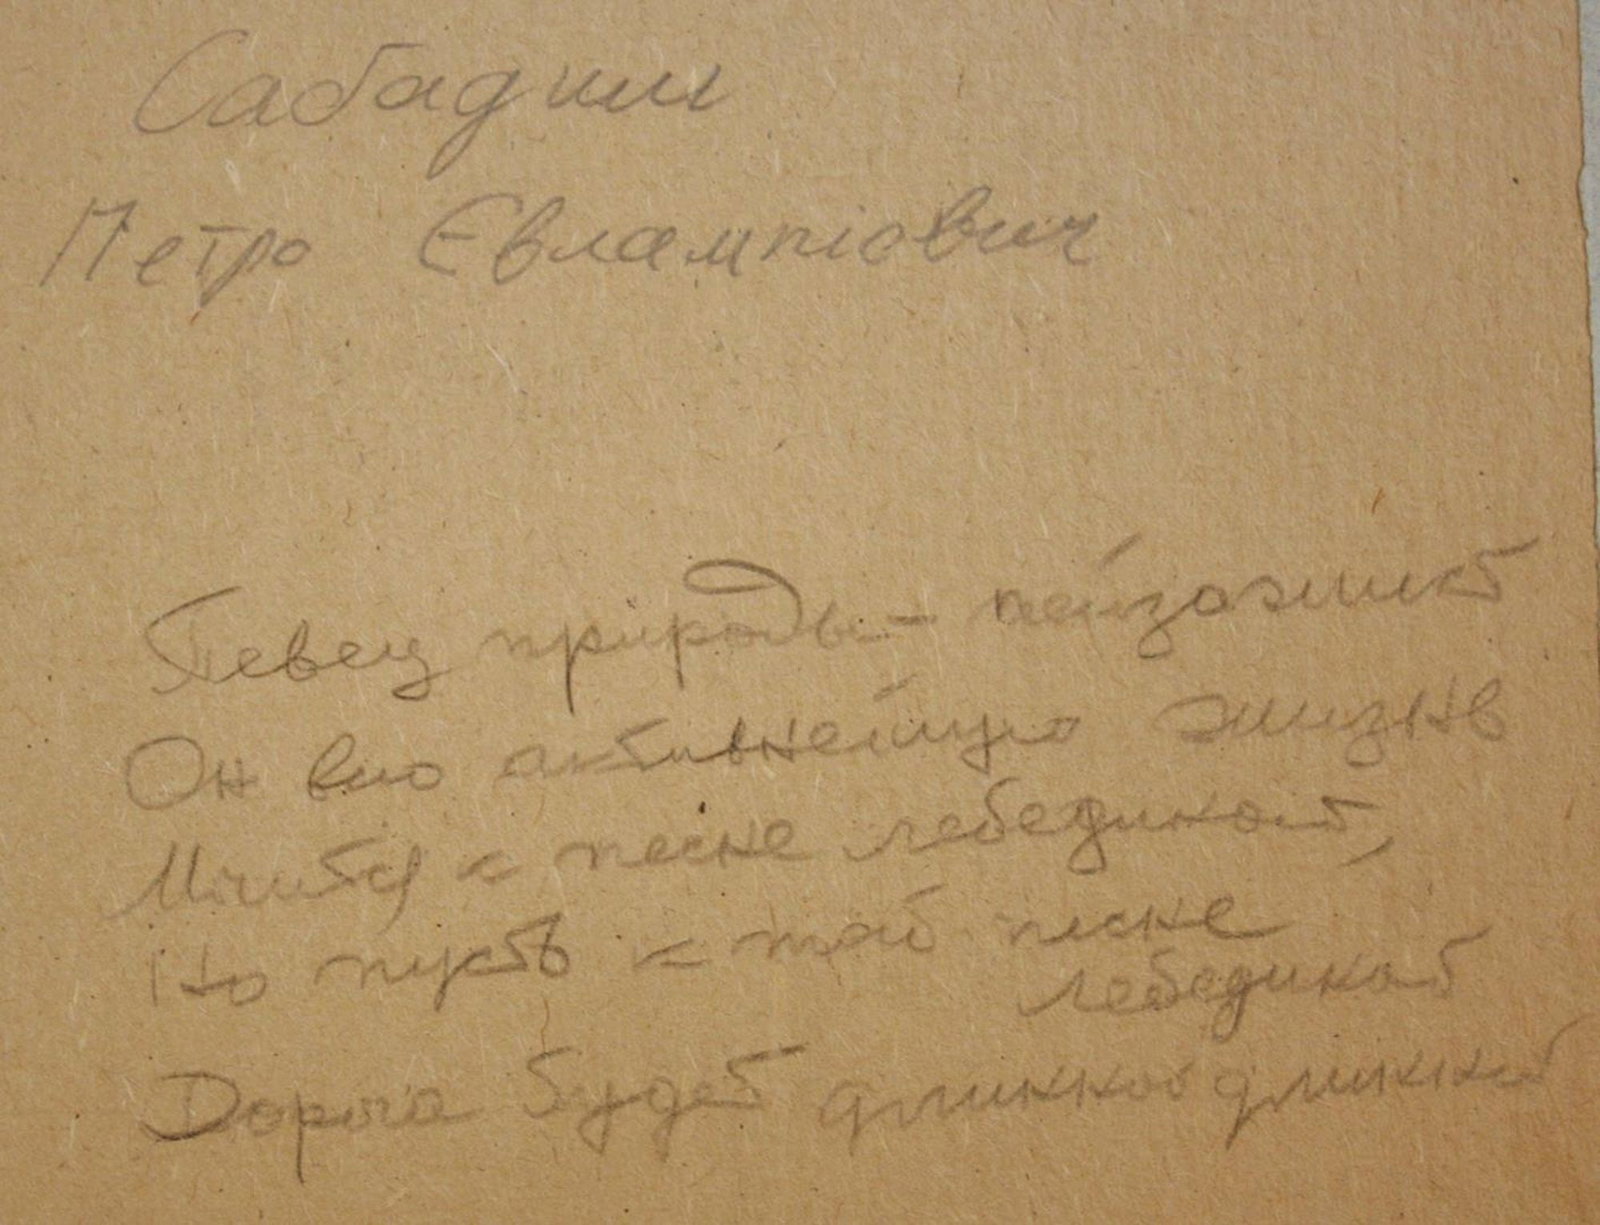 Сабадиш
Петро Євлампієвич
Певец природы - пейзажист
Он всю активнейшую жизнь
Мчится к песне лебединой,
Но пусть к той песне
лебединой
Дорога будет длинной длинной